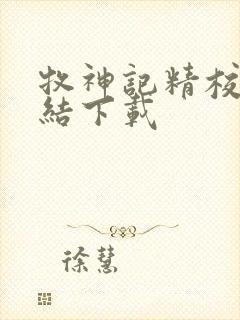 牧神記精校
結下載
徐慧